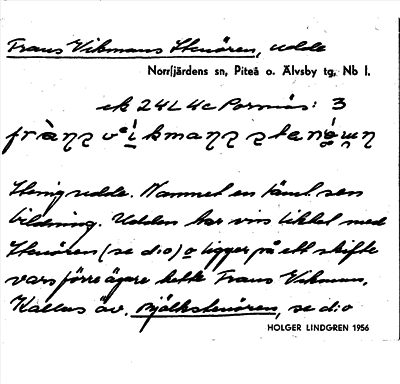 Frans Vikmans Stenören, udde
Norrfjärdens sn, Piteå o. Älvsby tg, Nb l.
ek 24L4c Pornäs: 3
Stenig udde. Namnet en täml. sen
bildning. Udden har viss likhet med
Stenören (se d:o) o ligger på ett skifte
vars förre ägare hette Frans Vikman.
Kallas äv. Mjölkstenören, se d:o
HOLGER LINDGREN 1956